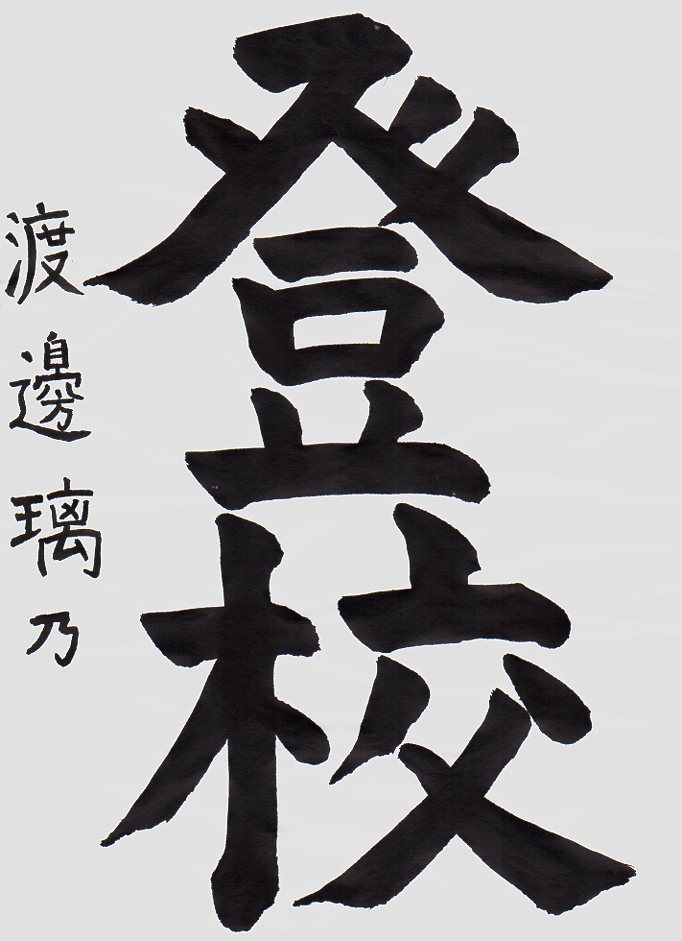 登校
渡邊璃乃